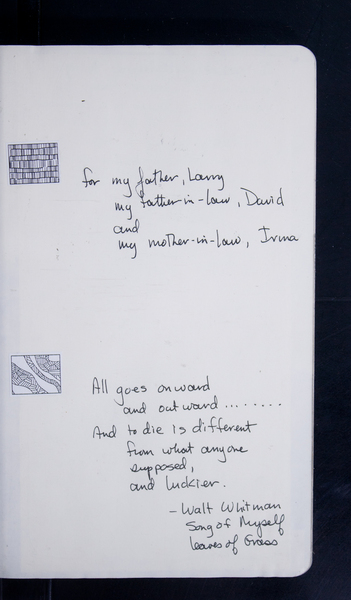 for my father, Larry
my father-in-law, David
and
my mother-in-law, Irma
All goes onward
and outward ........
And to die is different
from what anyone
supposed,
and luckier.
- Walt Whitman
Song of Myself
leaves of Grass